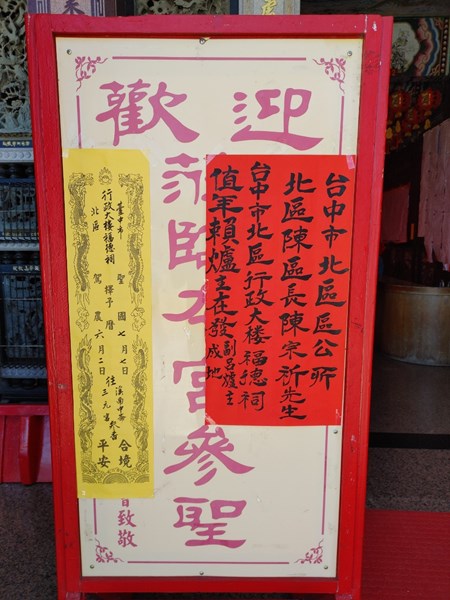 歡迎
蒞臨本宮參聖
致敬
台中市北區區公所
北區陳區長陳宗祈先生
台中市北區行政大楼福德祠
值年賴爐主在發副呂爐主成地
臺中市
北區
行政大樓福德祠
聖駕
擇予
國曆七月七日
農曆六月二日
往
合境平安